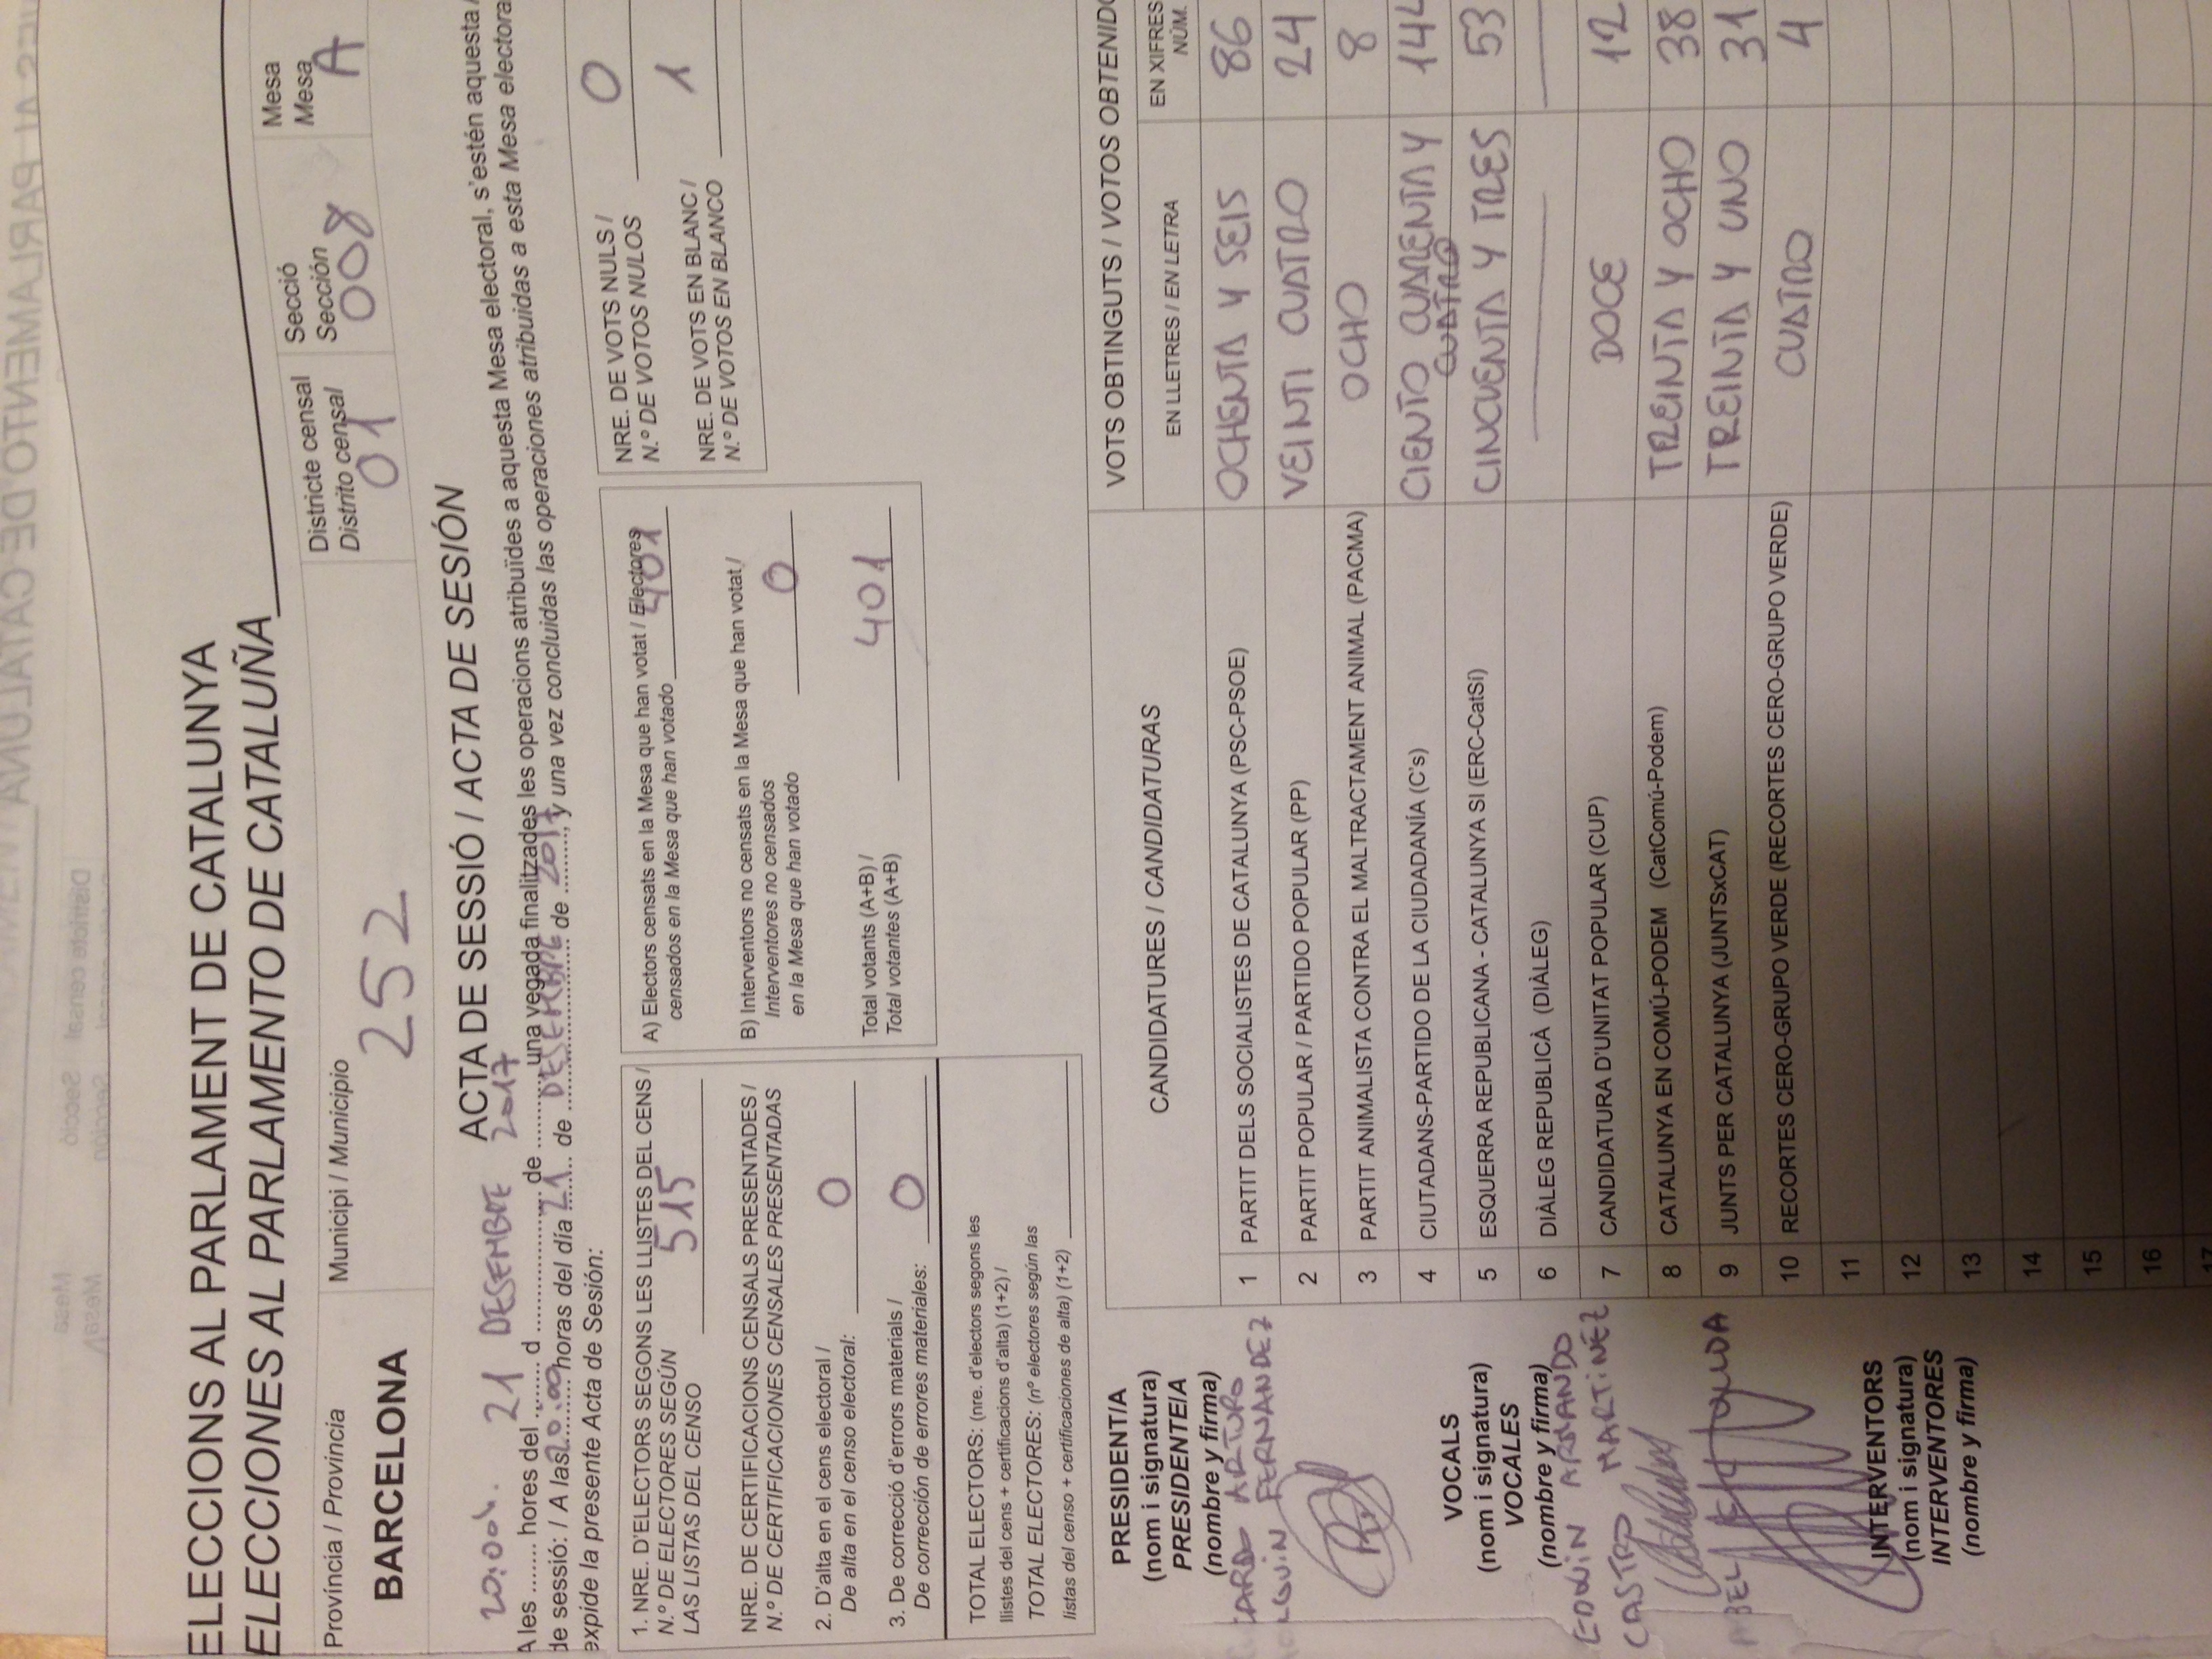 ELECCIONS AL PARLAMENT DE CATALUNYA
ELECCIONES AL PARLAMENTO DE CATALUÑA
Província / Provincia
BARCELONA
Municipi / Municipio
252
Districte censal
Distrito censal
01
Secció
Sección
008
Mesa
Mesa
A
ACTA DE SESSIÓ / ACTA DE SESIÓN
20:00h. 21 DESEMBRE 2017
A les ....... hores del ........ d .................... de .........., una vegada finalitzades les operacions atribuïdes a aquesta Mesa electoral, s'estén aquesta
de sessió: / A las 20:00 horas del día 21 de DESEMBRE de 2017, y una vez concluidas las operaciones atribuidas a esta Mesa electora
expide la presente Acta de Sesión:
1. NRE. D'ELECTORS SEGONS LES LLISTES DEL CENS /
N.º DE ELECTORES SEGÚN
LAS LISTAS DEL CENSO 515
NRE. DE CERTIFICACIONS CENSALS PRESENTADES /
N.º DE CERTIFICACIONES CENSALES PRESENTADAS
2. D'alta en el cens electoral /
De alta en el censo electoral: 0
3. De correcció d'errors materials /
De corrección de errores materiales: 0
TOTAL ELECTORS: (nre. d'electors segons les
llistes del cens + certificacions d'alta) (1+2) /
TOTAL ELECTORES: (nº electores según las
listas del censo + certificaciones de alta) (1+2)
A) Electors censats en la Mesa que han votat / Electores
censados en la Mesa que han votado 401
B) Interventors no censats en la Mesa que han votat /
Interventores no censados
en la Mesa que han votado 0
Total votants (A+B) /
Total votantes (A+B) 401
NRE. DE VOTS NULS /
N.º DE VOTOS NULOS 0
NRE. DE VOTS EN BLANC /
N.º DE VOTOS EN BLANCO 1
PRESIDENT/A
(nom i signatura)
PRESIDENTE/A
(nombre y firma)
ARTURO
FERNANDEZ
VOCALS
(nom i signatura)
VOCALES
(nombre y firma)
EDWIN ARMANDO
CASTRO MARTINEZ
ABEL
INTERVENTORS
(nom i signatura)
INTERVENTORES
(nombre y firma)
CANDIDATURES / CANDIDATURAS
VOTS OBTINGUTS / VOTOS OBTENIDO
EN LLETRES / EN LETRA
EN XIFRES
NÚM.
1 PARTIT DELS SOCIALISTES DE CATALUNYA (PSC-PSOE) OCHENTA Y SEIS 86
2 PARTIT POPULAR / PARTIDO POPULAR (PP) VEINTI CUATRO 24
3 PARTIT ANIMALISTA CONTRA EL MALTRACTAMENT ANIMAL (PACMA) OCHO 8
4 CIUTADANS-PARTIDO DE LA CIUDADANÍA (C's) CIENTO CUARENTA Y 144
CUATRO
5 ESQUERRA REPUBLICANA - CATALUNYA SI (ERC-CatSí) CINCUENTA Y TRES 53
6 DIÀLEG REPUBLICÀ (DIÀLEG)
7 CANDIDATURA D'UNITAT POPULAR (CUP) DOCE 12
8 CATALUNYA EN COMÚ-PODEM (CatComú-Podem) TREINTA Y OCHO 38
9 JUNTS PER CATALUNYA (JUNTSxCAT) TREINTA Y UNO 31
10 RECORTES CERO-GRUPO VERDE (RECORTES CERO-GRUPO VERDE) CUATRO 4
11
12
13
14
15
16
17